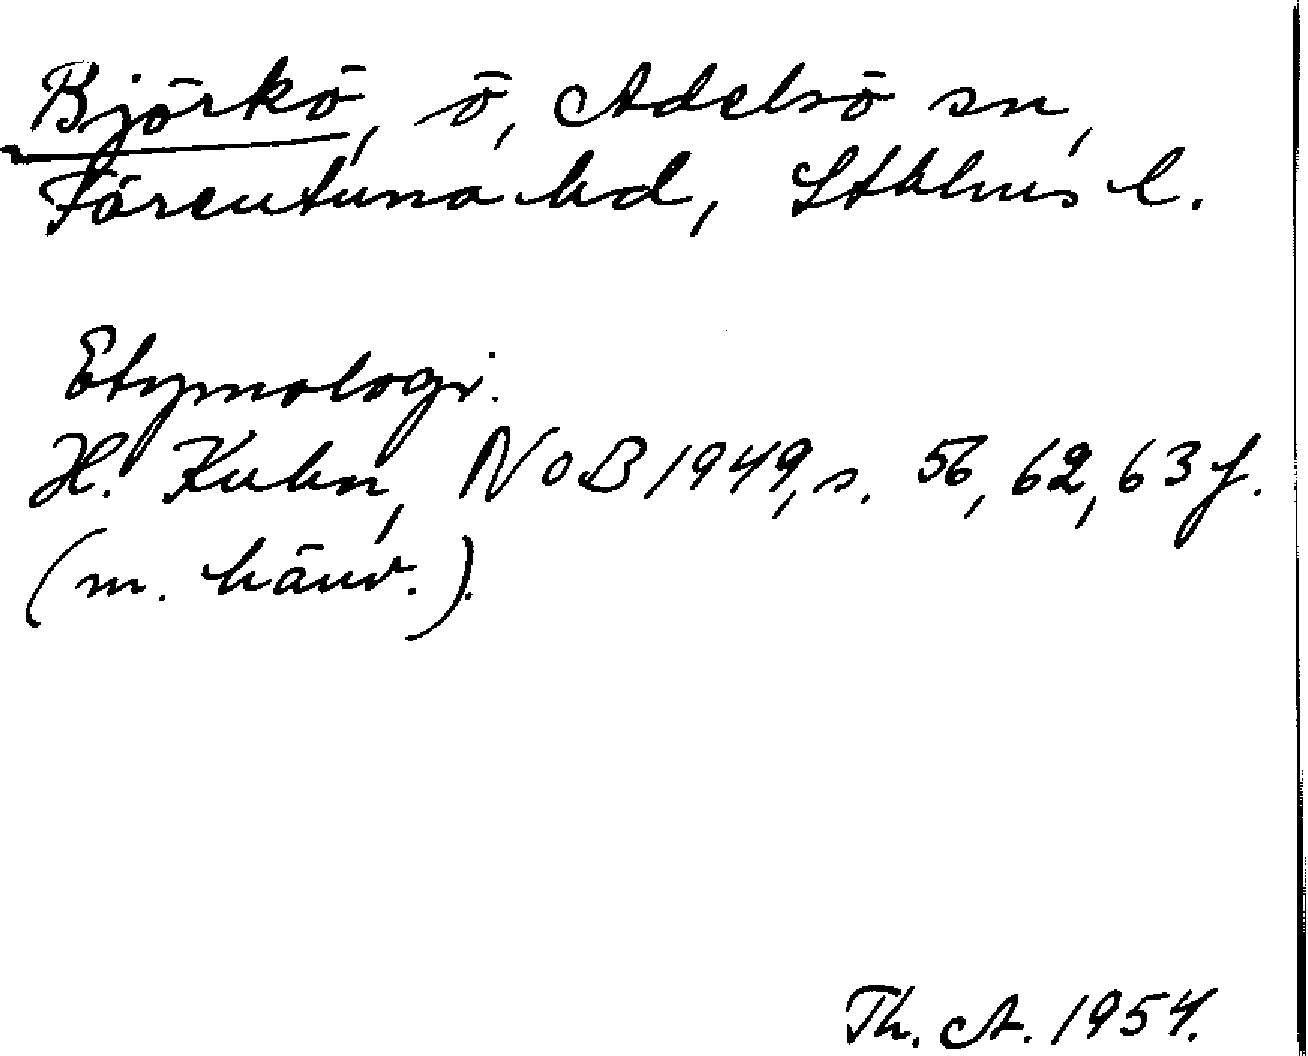 Björkö, ö, Adelsö sn,
Färentuna hd, Sthlms l.
Etymologi.
H. Kuhn, NoB 1949, s. 56, 62, 63 f.
(m. hänv.).
Th. A. 1954.